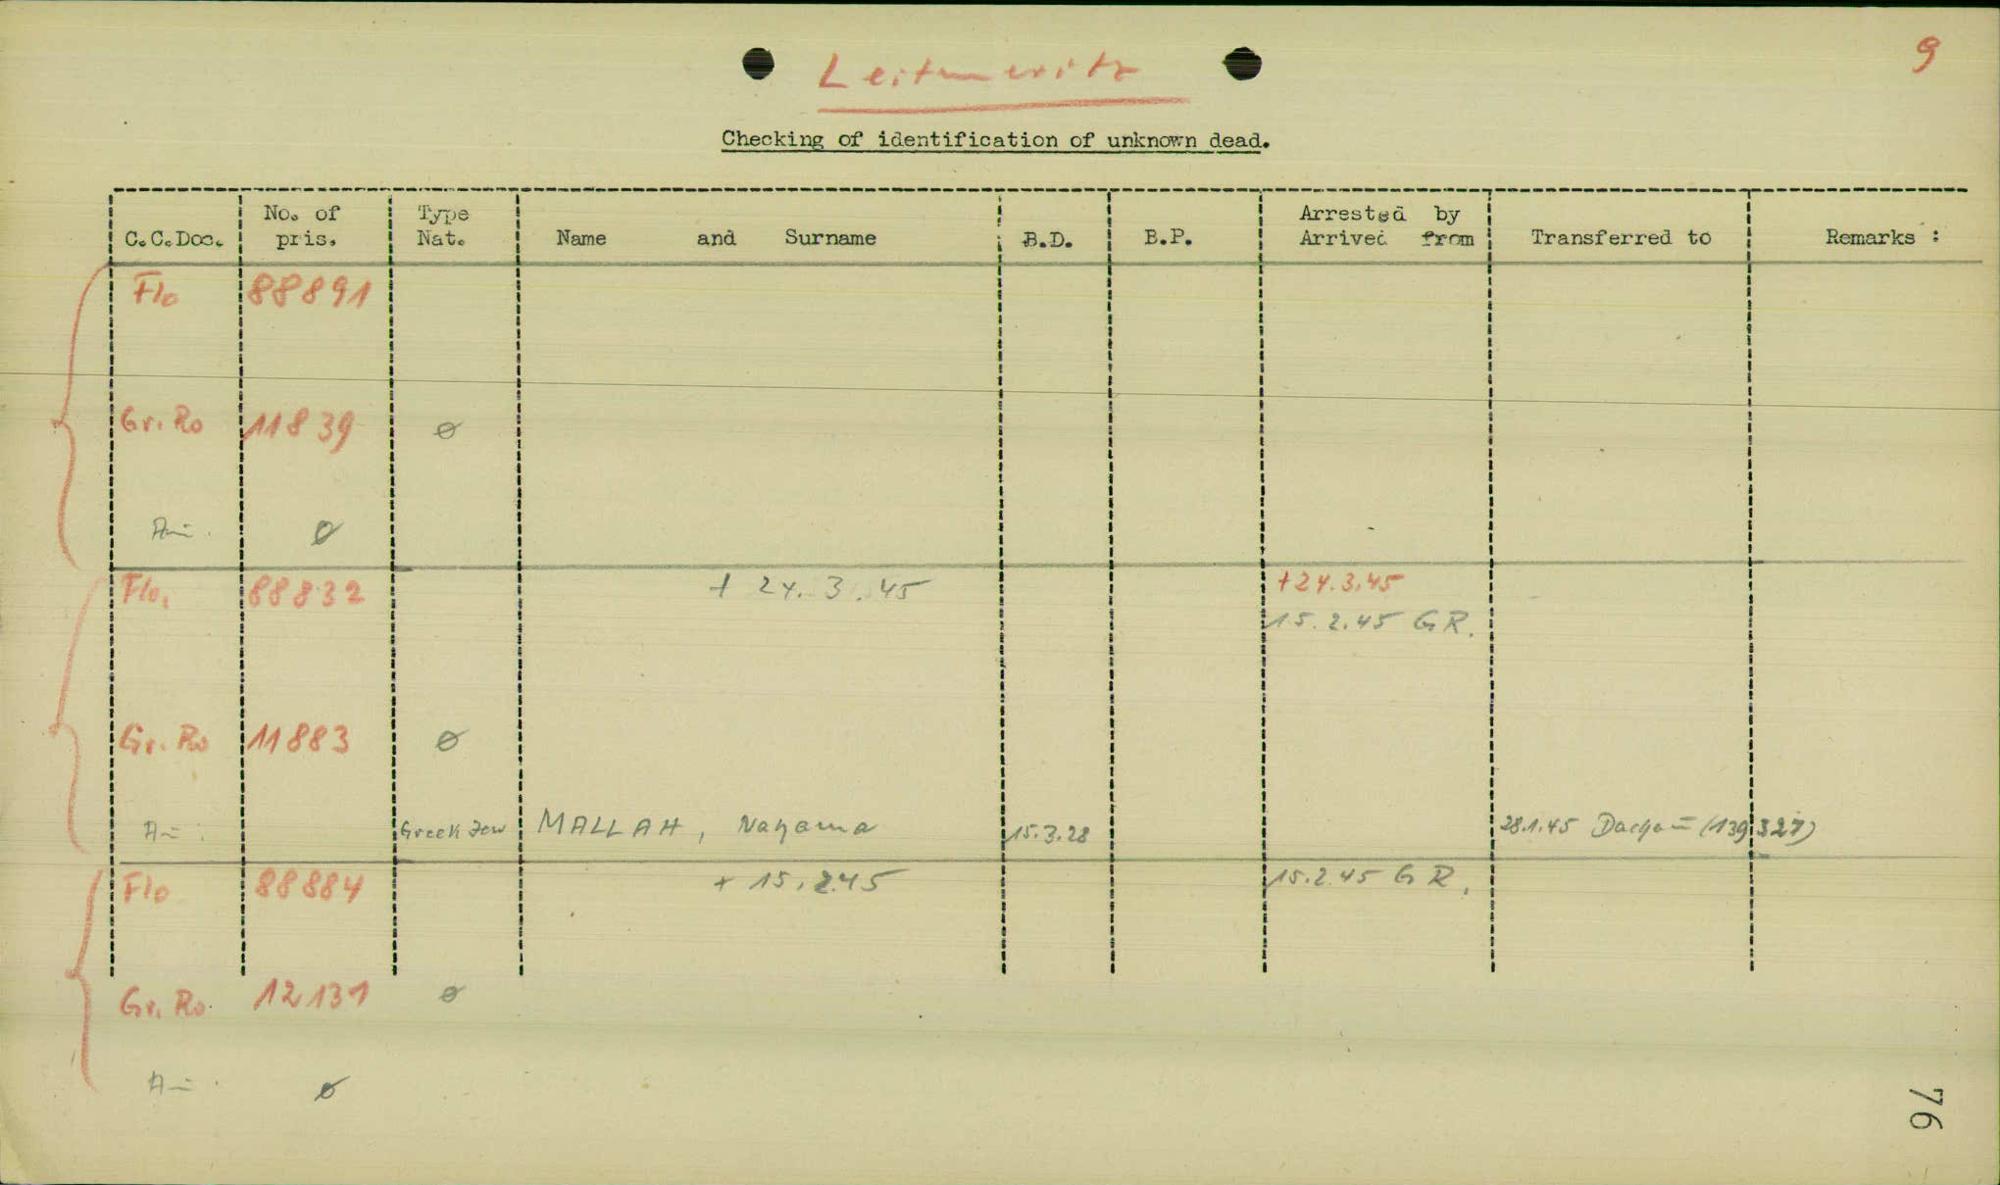 Leitmeritz
9
Checking of identification of unknown dead.
C.C.Doc. No. of pris. Type Nat. Name and Surname B.D. B.P. Arrested by Arrived from Transferred to Remarks :
Flo 88891
Gr. Ro 11839 ø
ø
Flo. 88832 + 24. 3. 45 +24.3.45
15. 2. 45 GR.
Gr. Ro 11883 ø
Greek Jew MALLAH, Nahama 15.3.28 28.1.45 Dachau (139327)
Flo 88884 + 15. 2.45 15.2.45 GR.
Gr. Ro. 12131 ø
ø
76